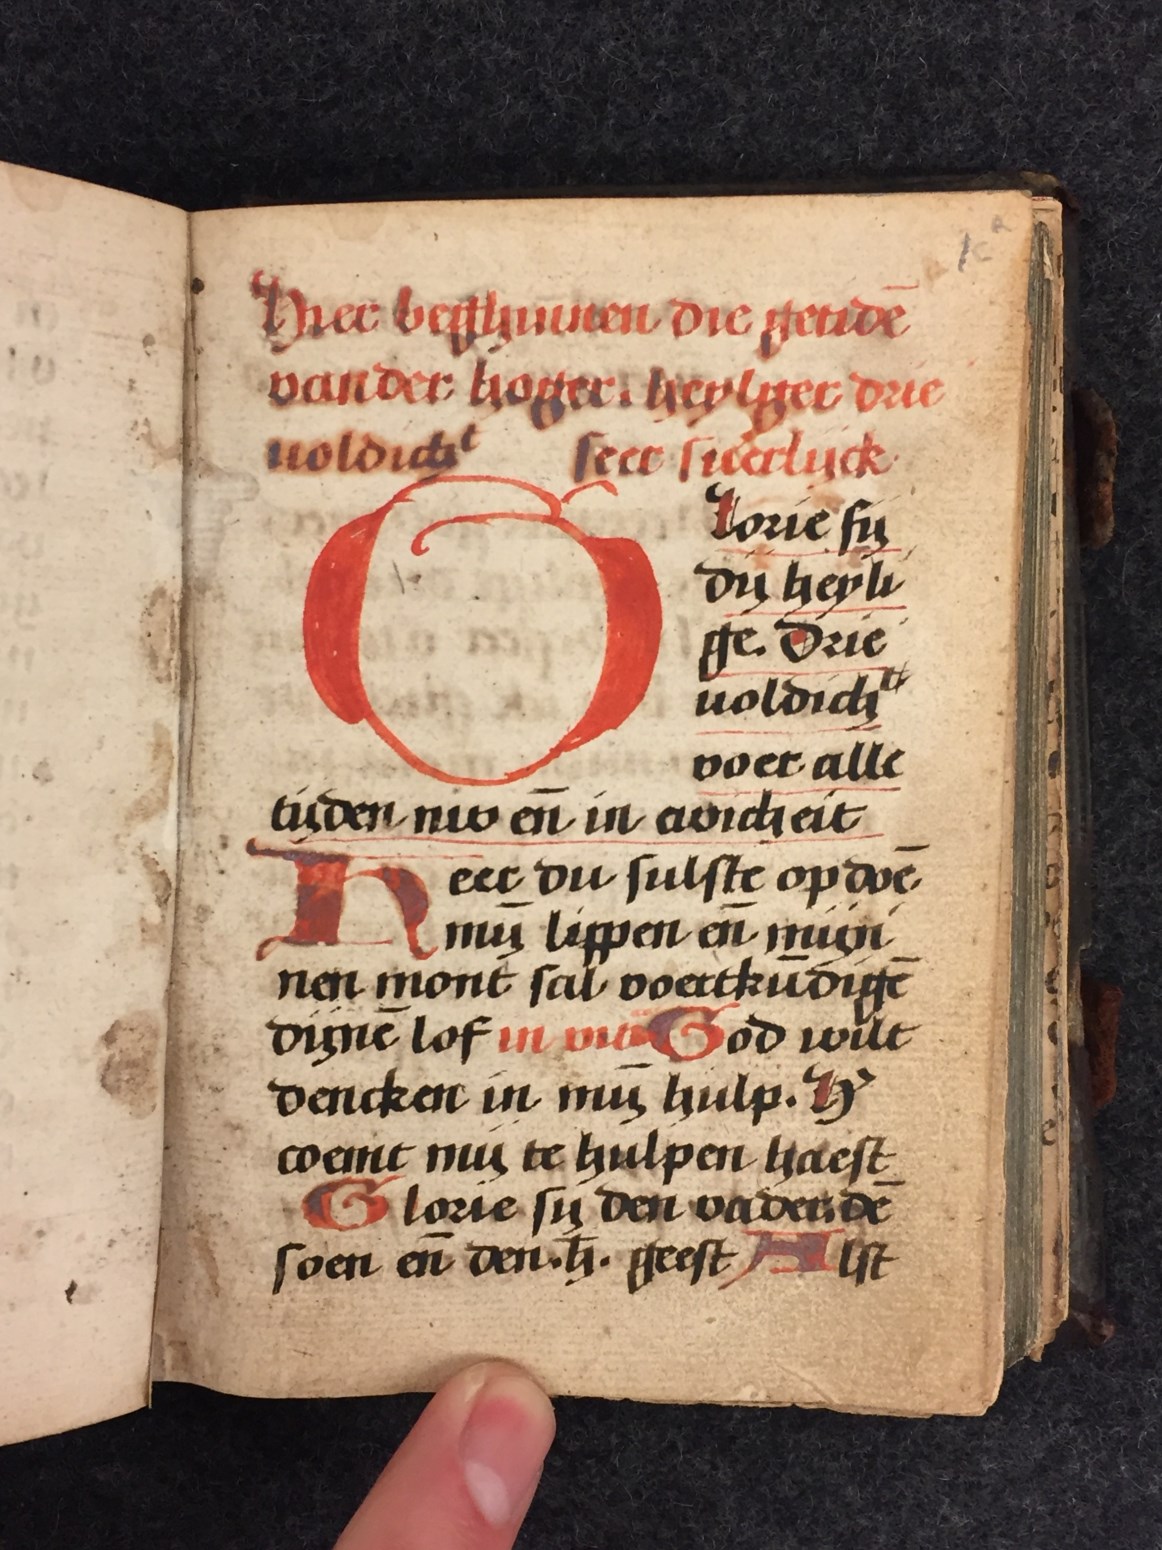 Hier beghinnen die getidē
vander hoger. heyliger drie
uoldicht seer suerlijck
O lorie sy
dy heyli
ge. Drie
uoldichtt
voer alle
tijden nw eñ in ewicheit
Heer du sulste opdoē
mij̄ lippen eñ mijni
nen mont sal voertkūdigē
dijnē lof God wilt
dencken in mij̄ hulp. H'
coemt mij te hulpen haest
Glorie sy den vader. dē
soen eñ den .h̄. geest Alst